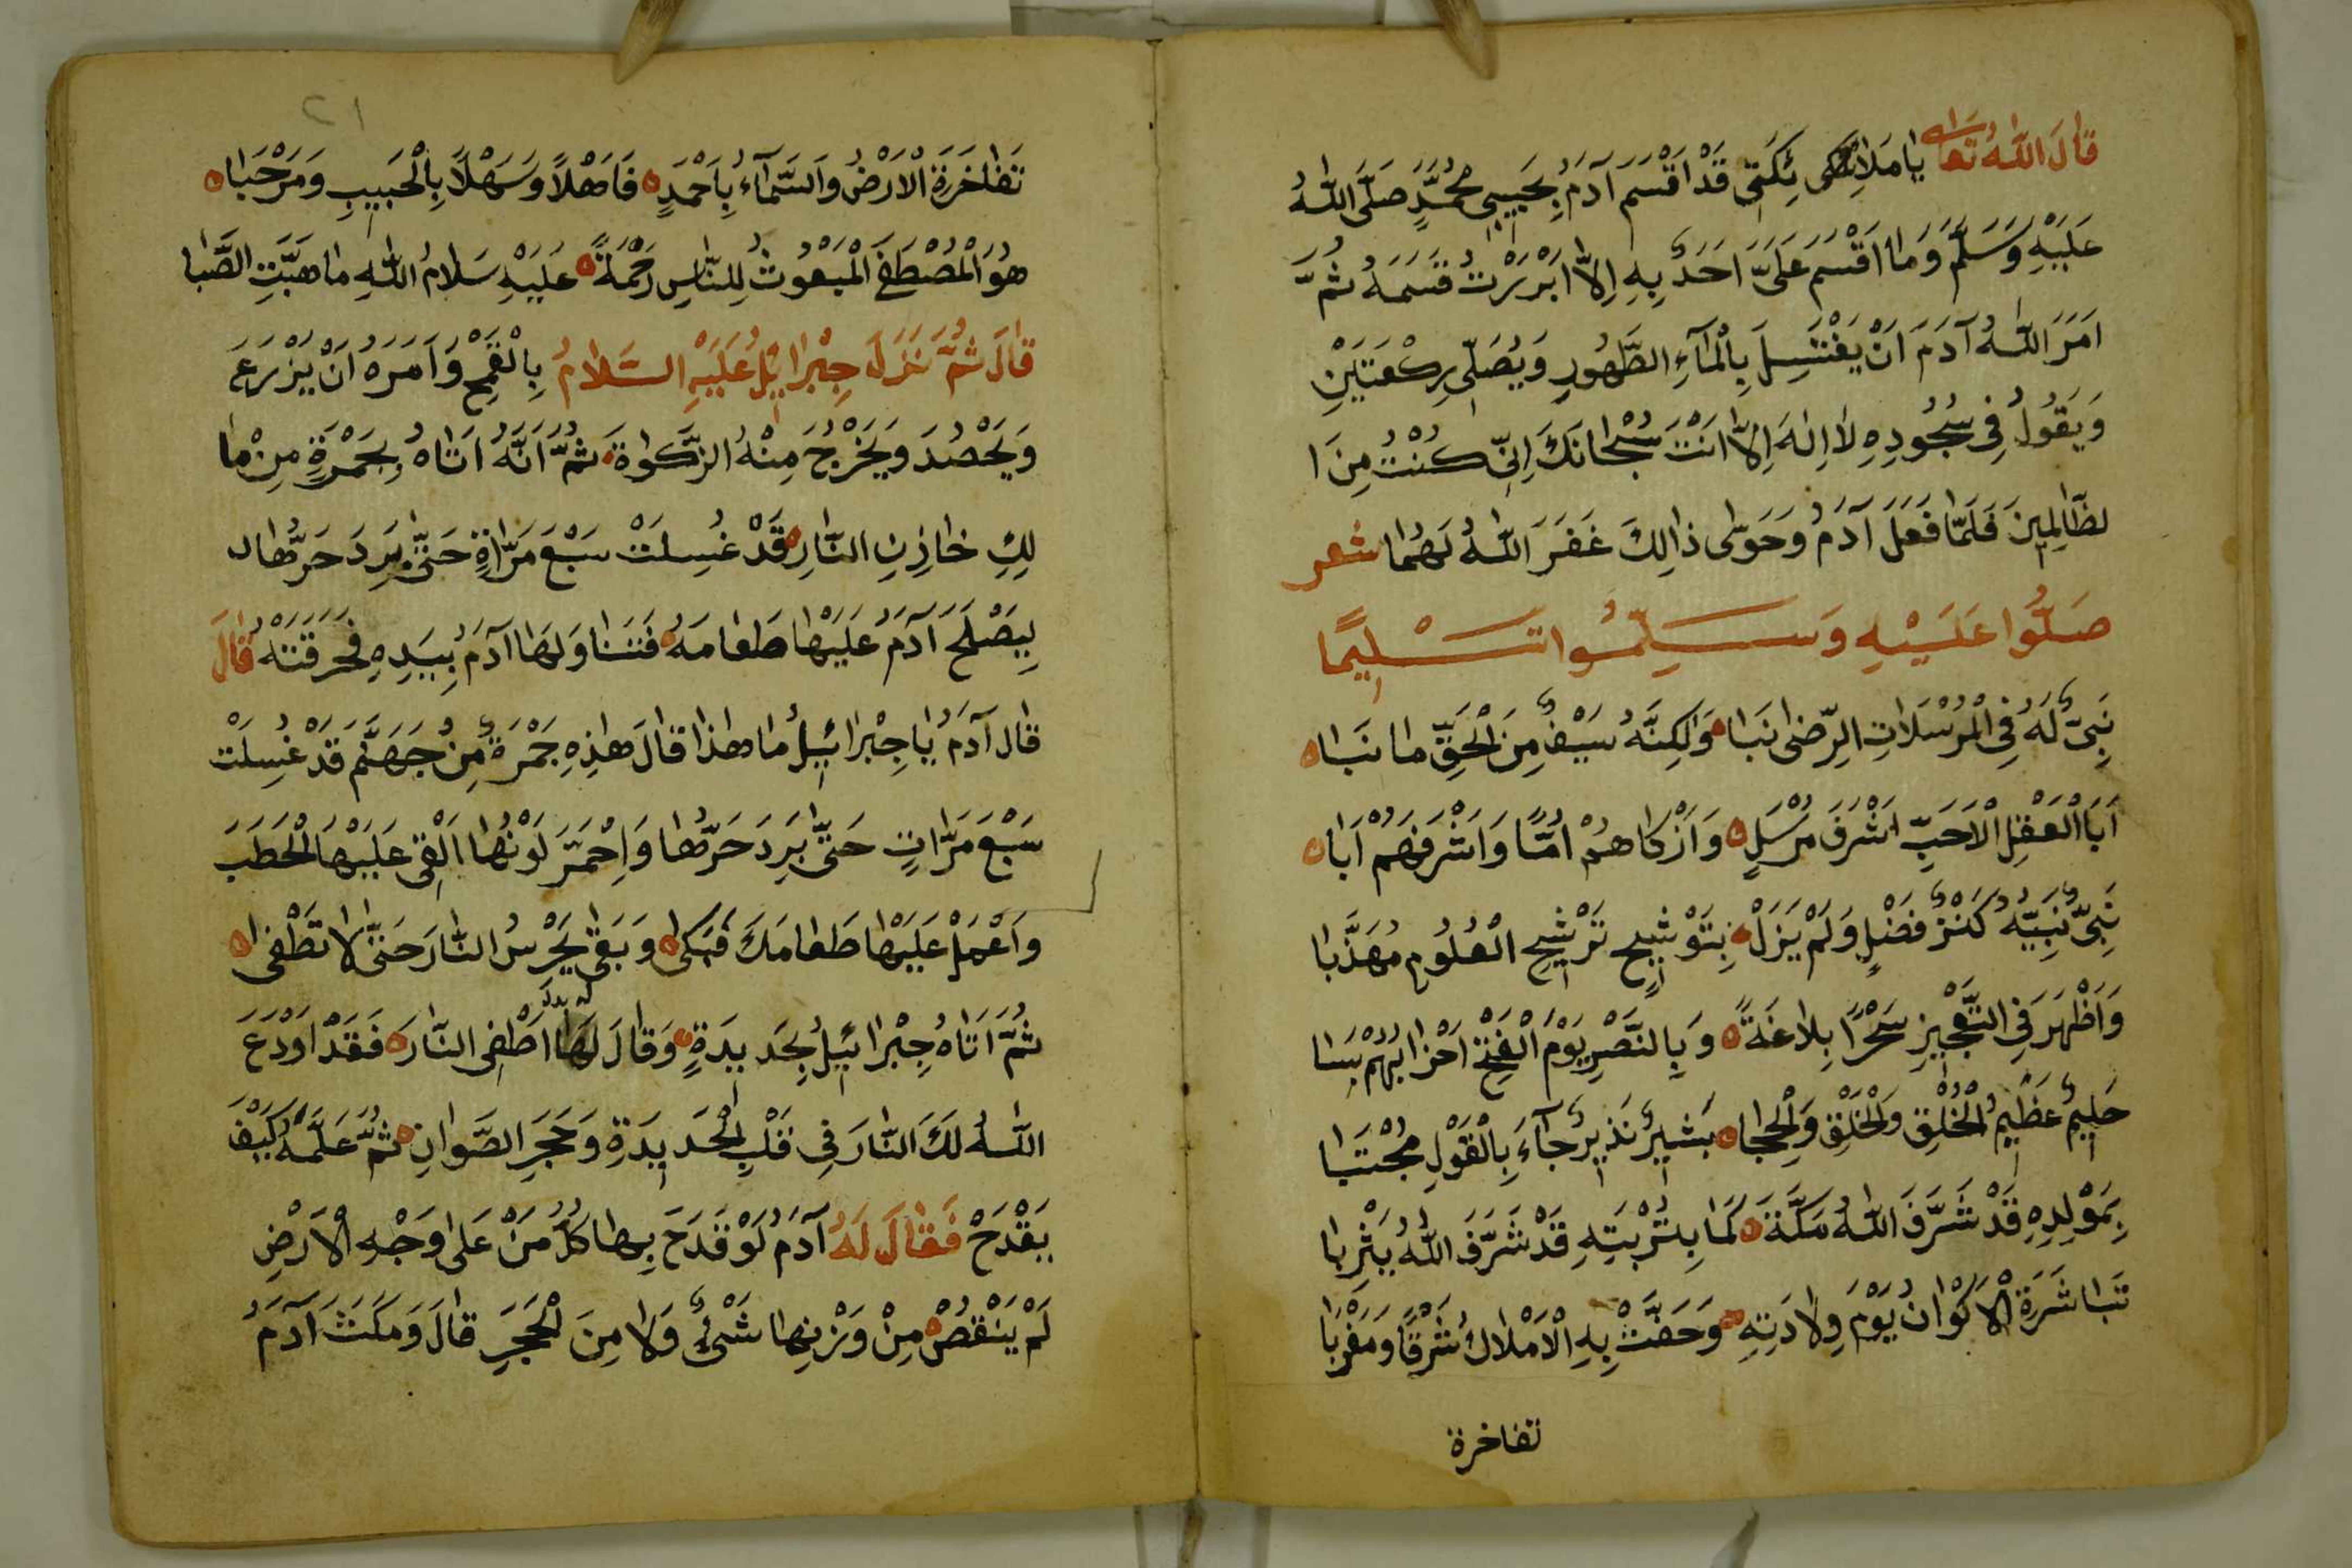 قَالَ اللّٰهُ تَعَالٰى يَا مَلَائِكَى ئِكَتِى قَدْ اَقْسَمَ آدَمُ بِحَبِيبِى مُحَمَّدٍ صَلَّى اللّٰهُ
عَلَيْهِ وَسَلَّمَ وَمَا اَقْسَمَ عَلَىَّ اَحَدٌ بِهِ اِلَّا اَبْرَرْتُ قَسَمَهُ ثُمَّ
اَمَرَ اللّٰهُ آدَمَ اَنْ يَغْتَسِلَ بِالْمَآءِ الطَّهُورِ وَيُصَلِّى رِكْعَتَيْنِ
وَيَقُولُ فِى سُجُودِهِ لَا اِلٰهَ اِلَّا اَنْتَ سُبْحَانَكَ اِنِّى كُنْتُ مِنَ ا
لظَّالِمِينَ فَلَمَّا فَعَلَ آدَمُ وَحَوَّى ذَالِكَ غَفَرَ اللّٰهُ لَهُمَا شعر
صَلُّوا عَلَيْهِ وَسَلِّمُوا تَسْلِيمًا
نَبِىٌّ لَهُ فِى الْمُرْسَلَاتِ الرِّضٰى نَبَا ه وَلٰكِنَّهُ سَيْفٌ مِنَ الْحَقِّ مَا نَبَا ه
اَبَا الْعَقْلِ الْاَحَبِّ اَشْرَفَ مُرْسَلٍ ه وَاَزْكَاهُمْ اُمًّا وَاَشْرَفَهُمْ اَبَا ه
نَبِىٌّ نَبِيهٌ كَنْزُ فَضْلٍ وَلَمْ يَزَلْ ه بِتَوْشِيحِ تَرْشِيحِ الْعُلُومِ مُهَذَّبَا
وَاَظْهَرَ فِى التَّعْجِيزِ سَحْرًا بِلَاغَةً ه وَبِالنَّصْرِ يَوْمَ الْفَتْحِ اَحْزَابُهُمْ سَبَا
حَلِيمٌ عَظِيمُ الْخُلْقِ وَالْخَلْقِ وَالْحِجَا ه بَشِيرٌ نَذِيرٌ جَآءَ بِالْقَوْلِ مُجْتَبَا
بِمَوْلِدِهِ قَدْ شَرَّفَ اللّٰهُ مَكَّةَ ه كَمَا بِتُرْبَتِهِ قَدْ شَرَّفَ اللّٰهُ يَثْرِبَا
تَبَاشَرَةَ الْاَكْوَانُ يَوْمَ وِلَادَتِهِ ه وَحَفَّتْ بِهِ الْاَمْلَاكُ شَرْقًا وَمَغْرِبَا
تفاخرة
٢١
تَفَاخَرَةَ الْاَرْضُ وَالسَّمَآءُ بِاَحْمَدٍ ه فَاَهْلًا وَسَهْلًا بِالْحَبِيبِ وَمَرْحَبَا ه
هُوَ الْمُصْطَفَى الْمَبْعُوثُ لِلنَّاسِ رَحْمَةً ه عَلَيْهِ سَلَامُ اللّٰهِ مَا هَبَّتِ الصَّبَا
قَالَ ثُمَّ نَزَلَ جِبْرَائِيلُ عَلَيْهِ السَّلَامُ بِالْقَمْحِ وَاَمَرَهُ اَنْ يَزْرَعَ
وَيَحْصُدَ وَيُخْرِجَ مِنْهُ الزَّكٰوةَ ه ثُمَّ اَنَّهُ اَتَاهُ بِجَمْرَةٍ مِنْ مَا
لِكِ خَازِنِ النَّارِ ه قَدْ غُسِلَتْ سَبْعَ مَرَّاةٍ حَتَّى بَرِدَ حَرُّهَا ل
لِيَصْلَحَ آدَمُ عَلَيْهَا طَعَامَهُ ه فَتَنَاوَلَهَا آدَمُ بِيَدِهِ فَحَرَقَتْهُ قَالَ
قَالَ آدَمُ يَا جِبْرَائِيلُ مَا هٰذَا قَالَ هٰذِهِ جَمْرَةٌ مِنْ جَهَنَّمَ قَدْ غُسِلَتْ
سَبْعَ مَرَّاتٍ حَتَّى بَرِدَ حَرُّهَا وَاِحْمَرَّ لَوْنُهَا اَلْقِى عَلَيْهَا الْحَطَبَ
وَاَعْمِلْ عَلَيْهَا طَعَامَكَ فَبَكَى ه وَبَقٰى يَحْرُسُ النَّارَ حَتَّى لَا تَطْفٰى ه
ثُمَّ اَتَاهُ جِبْرَائِيلُ بِحَدِيدَةٍ ه وَقَالَ لَهَا اَطْفِى النَّارَ ه فَقَدْ اَوْدَعَ
اللّٰهُ لَكَ النَّارَ فِى قَلْبِ الْحَدِيدَةِ وَحَجَرِ الصَّوَانِ ه ثُمَّ عَلَّمَهُ كَيْفَ
يَقْدَحْ فَقَالَ لَهُ آدَمُ لَوْ قَدَحَ بِهَا كُلُّ مَنْ عَلٰى وَجْهِ الْاَرْضِ
لَمْ يَنْقُصْ ه مِنْ وَزْنِهَا شَىْءٌ وَلَا مِنَ لْحَجَرِ قَالَ وَمَكَثَ آدَمُ